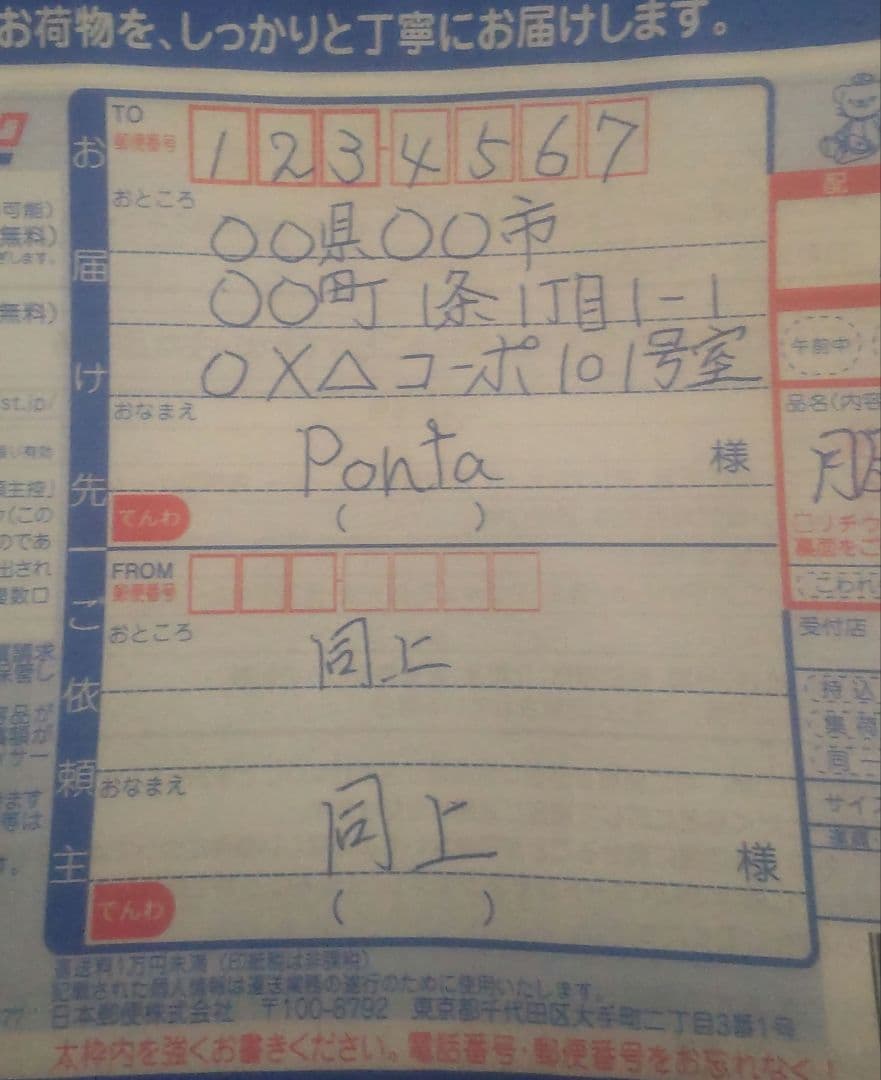 お荷物を、しっかりと丁寧にお届けします。
お届け先
TO
郵便番号
123-4567
おところ
○○県○○市
○○町1条1丁目1-1
○×△コーポ101号室
おなまえ
Ponta 様
てんわ ( )
ご依頼主
FROM
郵便番号
おところ
同上
おなまえ
同上 様
てんわ ( )
運送料1万円未満(印紙税は非課税)
記載された個人情報は運送業務の遂行のために使用いたします。
日本郵便株式会社 〒100-8792 東京都千代田区大手町二丁目3番1号
太枠内を強くお書きください。電話番号・郵便番号をお忘れなく!
可能)
無料)
無料)
st.jp/
配
午前中
品名(内容
こわれ
受付店
持込
集荷
同一
サイズ